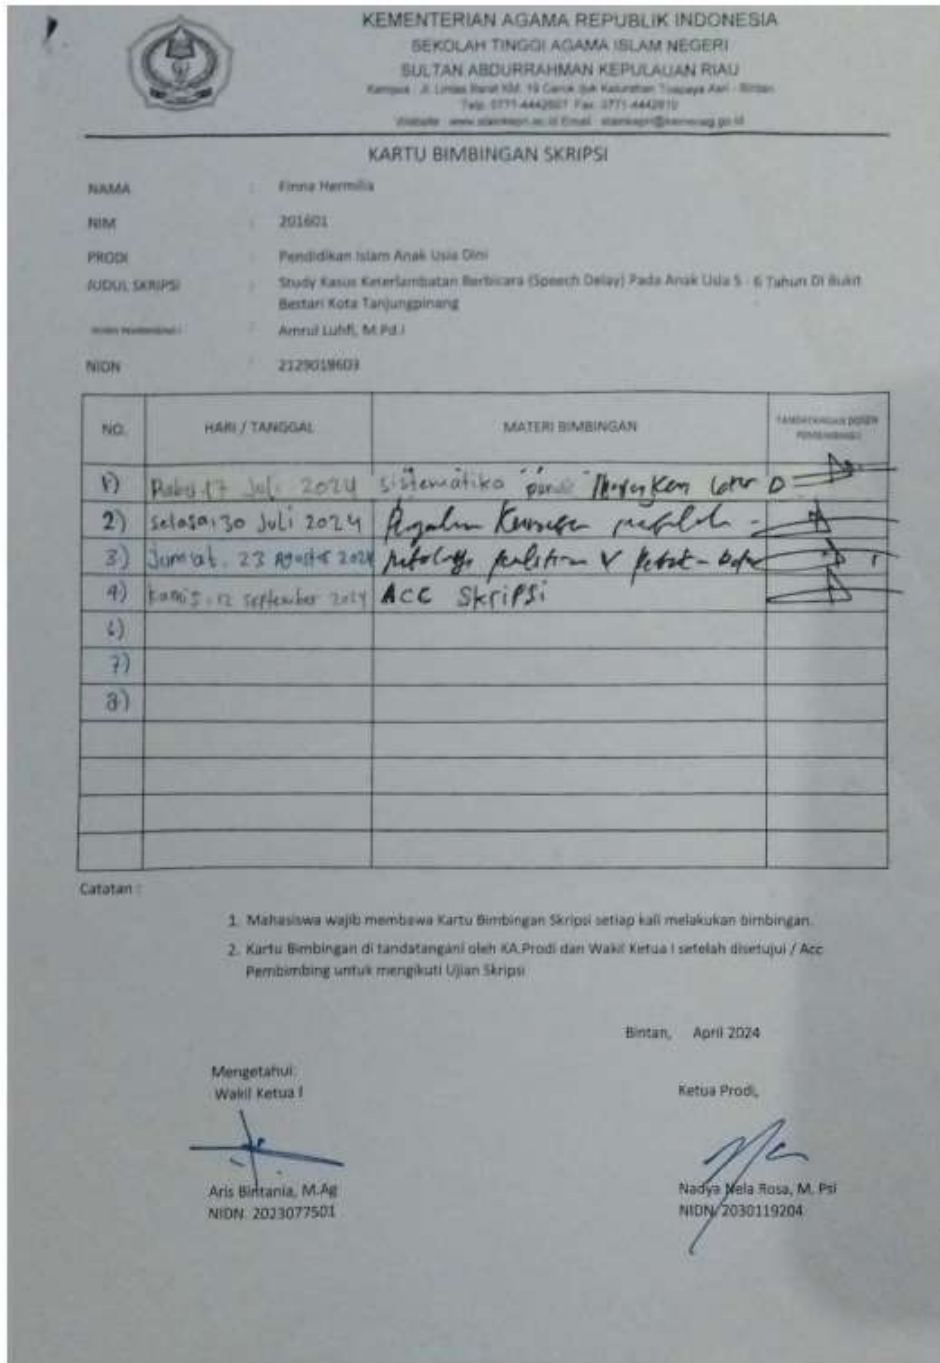 KEMENTERIAN AGAMA REPUBLIK INDONESIA
SEKOLAH TINGGI AGAMA ISLAM NEGERI
SULTAN ABDURRAHMAN KEPULAUAN RIAU
Kampus : Jl. Lintas Barat KM. 19 Ceruk Ijuk Kelurahan Toapaya Asri - Bintan
Telp. 0771-4442607 Fax. 0771-4442610
Website : www.stainkepri.ac.id Email : stainkepri@kemenag.go.id
KARTU BIMBINGAN SKRIPSI
NAMA : Finna Hermilia
NIM : 201601
PRODI : Pendidikan Islam Anak Usia Dini
JUDUL SKRIPSI : Study Kasus Keterlambatan Berbicara (Speech Delay) Pada Anak Usia 5 - 6 Tahun Di Bukit
Bestari Kota Tanjungpinang
DOSEN PEMBIMBING I : Amrul Luhfi, M.Pd.I
NIDN : 2129019603
NO. HARI / TANGGAL MATERI BIMBINGAN TANDATANGAN DOSEN PEMBIMBING I
1) Rabu, 17 Juli 2024 sistematika
2) selasa, 30 Juli 2024
3) Jum'at, 23 Agustus 2024
4) Kamis, 12 September 2024 ACC Skripsi
6)
7)
8)
Catatan :
1. Mahasiswa wajib membawa Kartu Bimbingan Skripsi setiap kali melakukan bimbingan.
2. Kartu Bimbingan di tandatangani oleh KA.Prodi dan Wakil Ketua I setelah disetujui / Acc
Pembimbing untuk mengikuti Ujian Skripsi
Bintan, April 2024
Mengetahui:
Wakil Ketua I
Ketua Prodi,
Aris Bintania, M.Ag
NIDN. 2023077501
Nadya Nela Rosa, M. Psi
NIDN. 2030119204